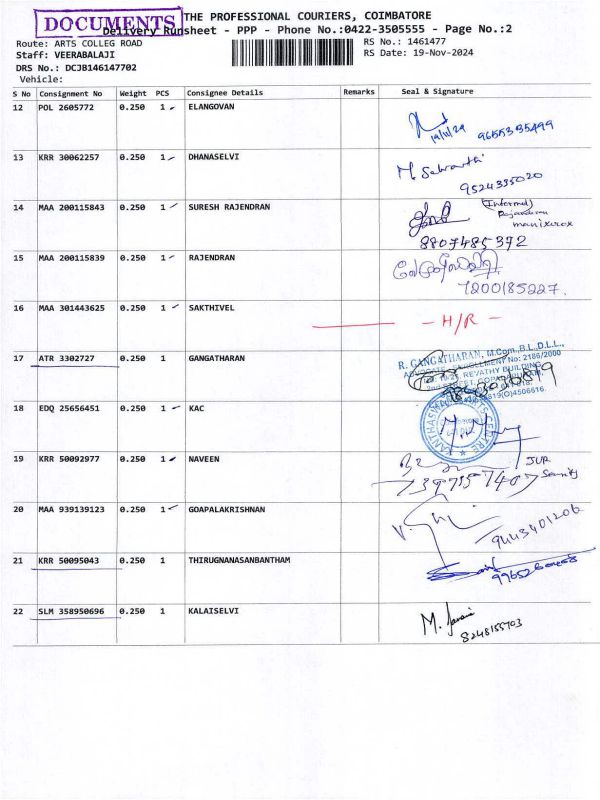 DOCUMENTS
THE PROFESSIONAL COURIERS, COIMBATORE
Delivery Runsheet - PPP - Phone No.:0422-3505555 - Page No.:2
Route: ARTS COLLEG ROAD
RS No.: 1461477
Staff: VEERABALAJI
RS Date: 19-Nov-2024
DRS No.: DCJB146147702
Vehicle:
S No Consignment No Weight PCS Consignee Details Remarks Seal & Signature
12 POL 2605772 0.250 1 ELANGOVAN
19/11/24
13 KRR 30062257 0.250 1 DHANASELVI
9524335020
14 MAA 200115843 0.250 1 SURESH RAJENDRAN
(Informed)
8807485372
15 MAA 200115839 0.250 1 RAJENDRAN
7200185227.
16 MAA 301443625 0.250 1 SAKTHIVEL
- H/R -
17 ATR 3302727 0.250 1 GANGATHARAN
R. GANGATHARAN, M.Com.,B.L.,D.L.L.,
ADVOCATE, ENROLLMENT No: 2186/2000
REVATHY BUILDING
18 EDQ 25656451 0.250 1 KAC
19 KRR 50092977 0.250 1 NAVEEN
20 MAA 939139123 0.250 1 GOAPALAKRISHNAN
9443401206
21 KRR 50095043 0.250 1 THIRUGNANASANBANTHAM
22 SLM 358950696 0.250 1 KALAISELVI
8248155703